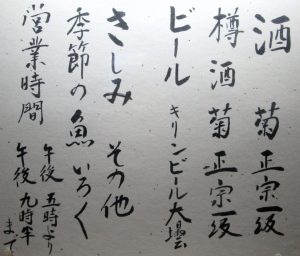 酒 菊正宗一級
樽酒 菊正宗一級
ビール キリンビール大場
さしみ その他
季節の魚いろく
営業時間 午後五時より
午後九時半まで